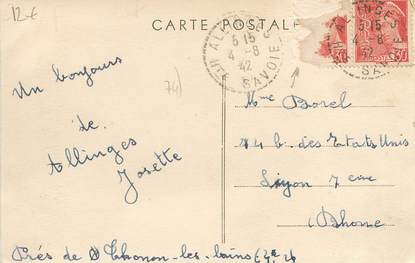 12€
CARTE POSTALE
ALLINGES
5 15
4 - 8
42
HTE SAVOIE
ALLINGES
5 15
4 - 8
42
SAVOIE
(74)
Un bonjour
de
Allinges
Josette
Mme Borel
b. des Etats Unis
Lyon 7eme
Rhone
Près de Thonon-les-bains